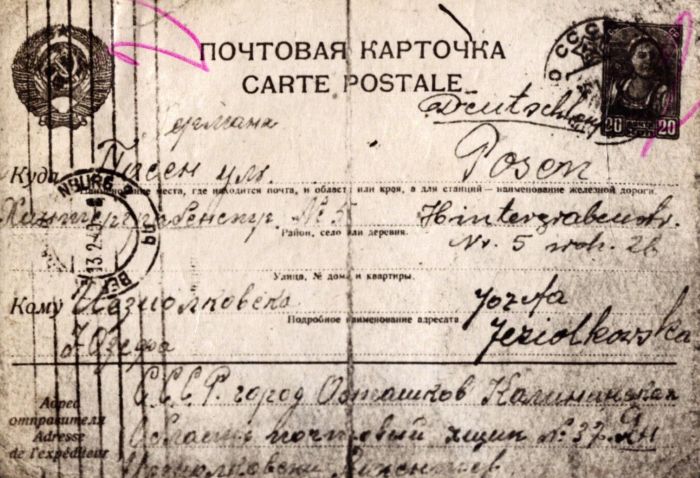 ПОЧТОВАЯ КАРТОЧКА
CARTE POSTALE
СССР
20 20
Deutschland
Германия
Куда Позен ул. Posen
Наименование места, где находится почта, и область или края, а для станций — наименование железной дороги.
Хинтерграбенстр. № 5 Hintergrabenstr.
Район, село или деревня.
Nr. 5 woh. 26
Улица, № дома и квартиры.
13.2.40
Кому Jozefa
Подробное наименование адресата.
Юзефа Jeziolkowska
С.С.С.Р. город Осташков Калининская
Адрес отправителя
Adresse de l'expéditeur
Область почтовый ящик № 37. Ян